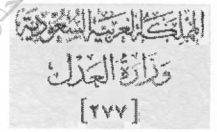 المملكة العربية السعودية
وزارة العدل
[٢٧٧]